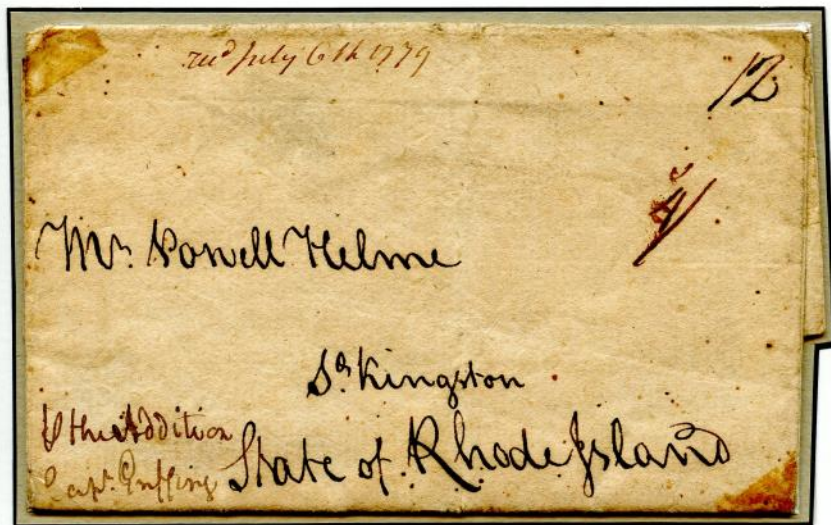 recd July 6th 1779
12
Mr. Powell Helme
So. Kingston
State of Rhode Island
the Addition
Capt.